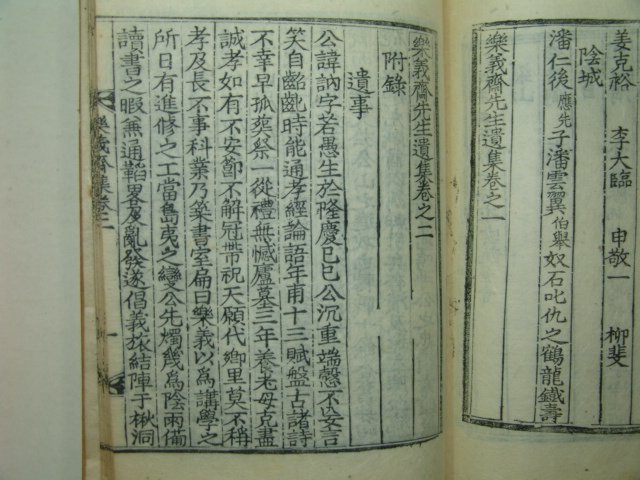 姜克裕 李大臨 申敬一 柳斐
陰城
潘仁後 應先 子潘雲翼 伯擧 奴石叱仇之鶴龍鐵壽
樂義齋先生遺集卷之一
樂義齋先生遺集卷之二
附錄
遺事
公諱訥字若愚生於隆慶己巳公沉重端慤不妄言
笑自齠齔時能通孝經論語年甫十三賦盤古諸詩
不幸早孤葬祭一從禮無憾廬墓三年養老母克盡
誠孝如有不安節不解冠帶祝天願代鄉里莫不稱
孝及長不事科業乃築書室扁曰樂義以爲講學之
所日有進修之工當島夷之變公先燭幾爲陰雨備
讀書之暇兼通韜畧及亂發遂倡義旅結陣于楸洞
樂義齋集卷二 一